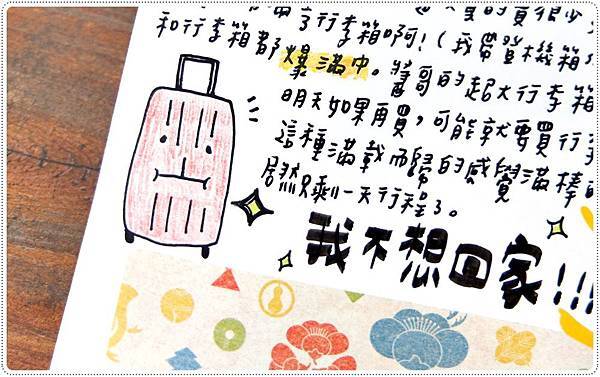 了行李箱啊!(我帶登機箱
和行李箱都爆滿中。醬哥的起大行李箱
明天如果再買,可能就要買行李
這種滿載而歸的感覺滿棒
居然只剩一天行程了。
我不想回家!!!